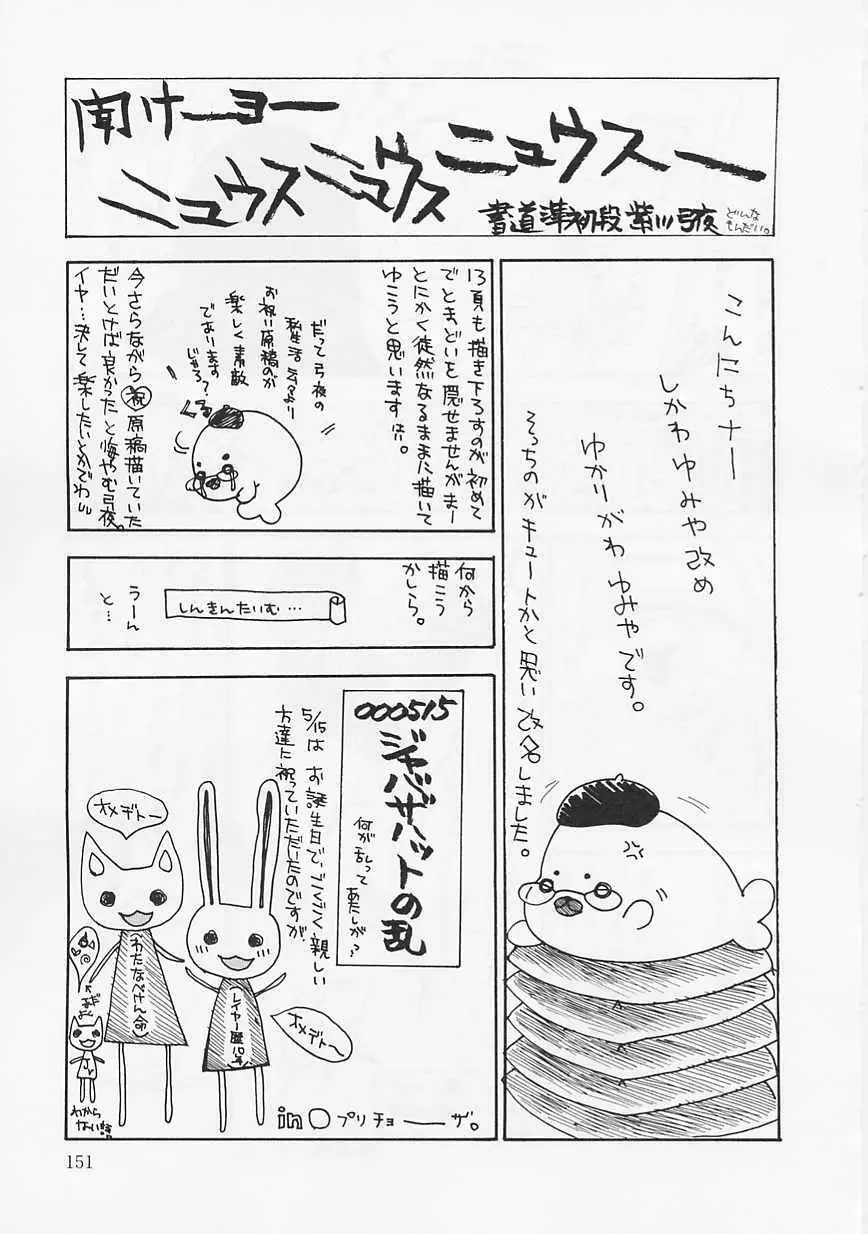 聞けーヨー
ニュウスニュウスニュウスー
書道準初段 紫川弓夜
どんな
もんだい。
こんにちナー
しかわゆみや改め
ゆかりがわ ゆみやです。
そっちのがキュートかと思い改名しました。
13頁も描き下ろすのが初めて
でとまどいを隠せませんがまー
とにかく徒然なるままに描いて
ゆこうと思います!!!。
だって弓夜の
私生活うんぬんより
お祝い原稿のが
楽しく素敵
であります
じゃろ?
今さらながら祝原稿描いていた
だいとけば良かったと悔やむ弓夜。
イヤ…決して楽したいとかでわ
何から
描こう
かしら。
しんきんたいむ…
うーん
と…
000515
ジャバザハットの乱
何が乱って
あたしが?
5/15は お誕生日で、ごくごく親しい
方達に祝っていただいたのですが
オメデトー
わたなべけん(命)
レイヤー歴10年
オメデトー
わから
ない話
in〇プリチョーーザ。
151